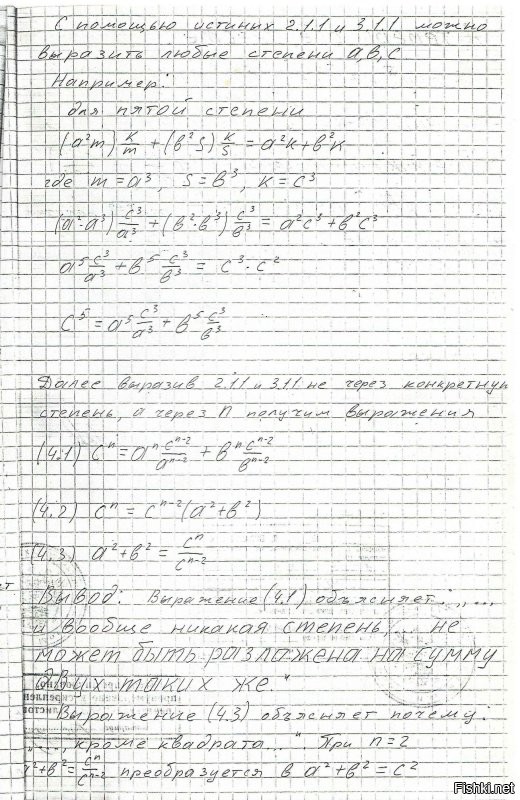 С помощью истиных 2.1.1 и 3.1.1 можно
выразить любые степени a, в, с
Например:
для пятой степени
(a²m) k/m + (в²s) k/s = a²k + в²k
где m = a³, s = в³, k = c³
(a²·a³) c³/a³ + (в²·в³) c³/в³ = a²c³ + в²c³
a⁵ c³/a³ + в⁵ c³/в³ = c³·c²
c⁵ = a⁵ c³/a³ + в⁵ c³/в³
Далее выразив 2.1.1 и 3.1.1 не через конкретную
степень, а через n получим выражения
(4.1) cⁿ = aⁿ cⁿ⁻²/aⁿ⁻² + вⁿ cⁿ⁻²/вⁿ⁻²
(4.2) cⁿ = cⁿ⁻²(a² + в²)
(4.3) a² + в² = cⁿ/cⁿ⁻²
Вывод: Выражение (4.1) объясняет: „...
и вообще никакая степень,... не
может быть разлажена на сумму
двух таких же."
Выражение (4.3) объясняет почему:
„..., кроме квадрата...". При n = 2
a² + в² = cⁿ/cⁿ⁻² преобразуется в a² + в² = c²
Fishki.net